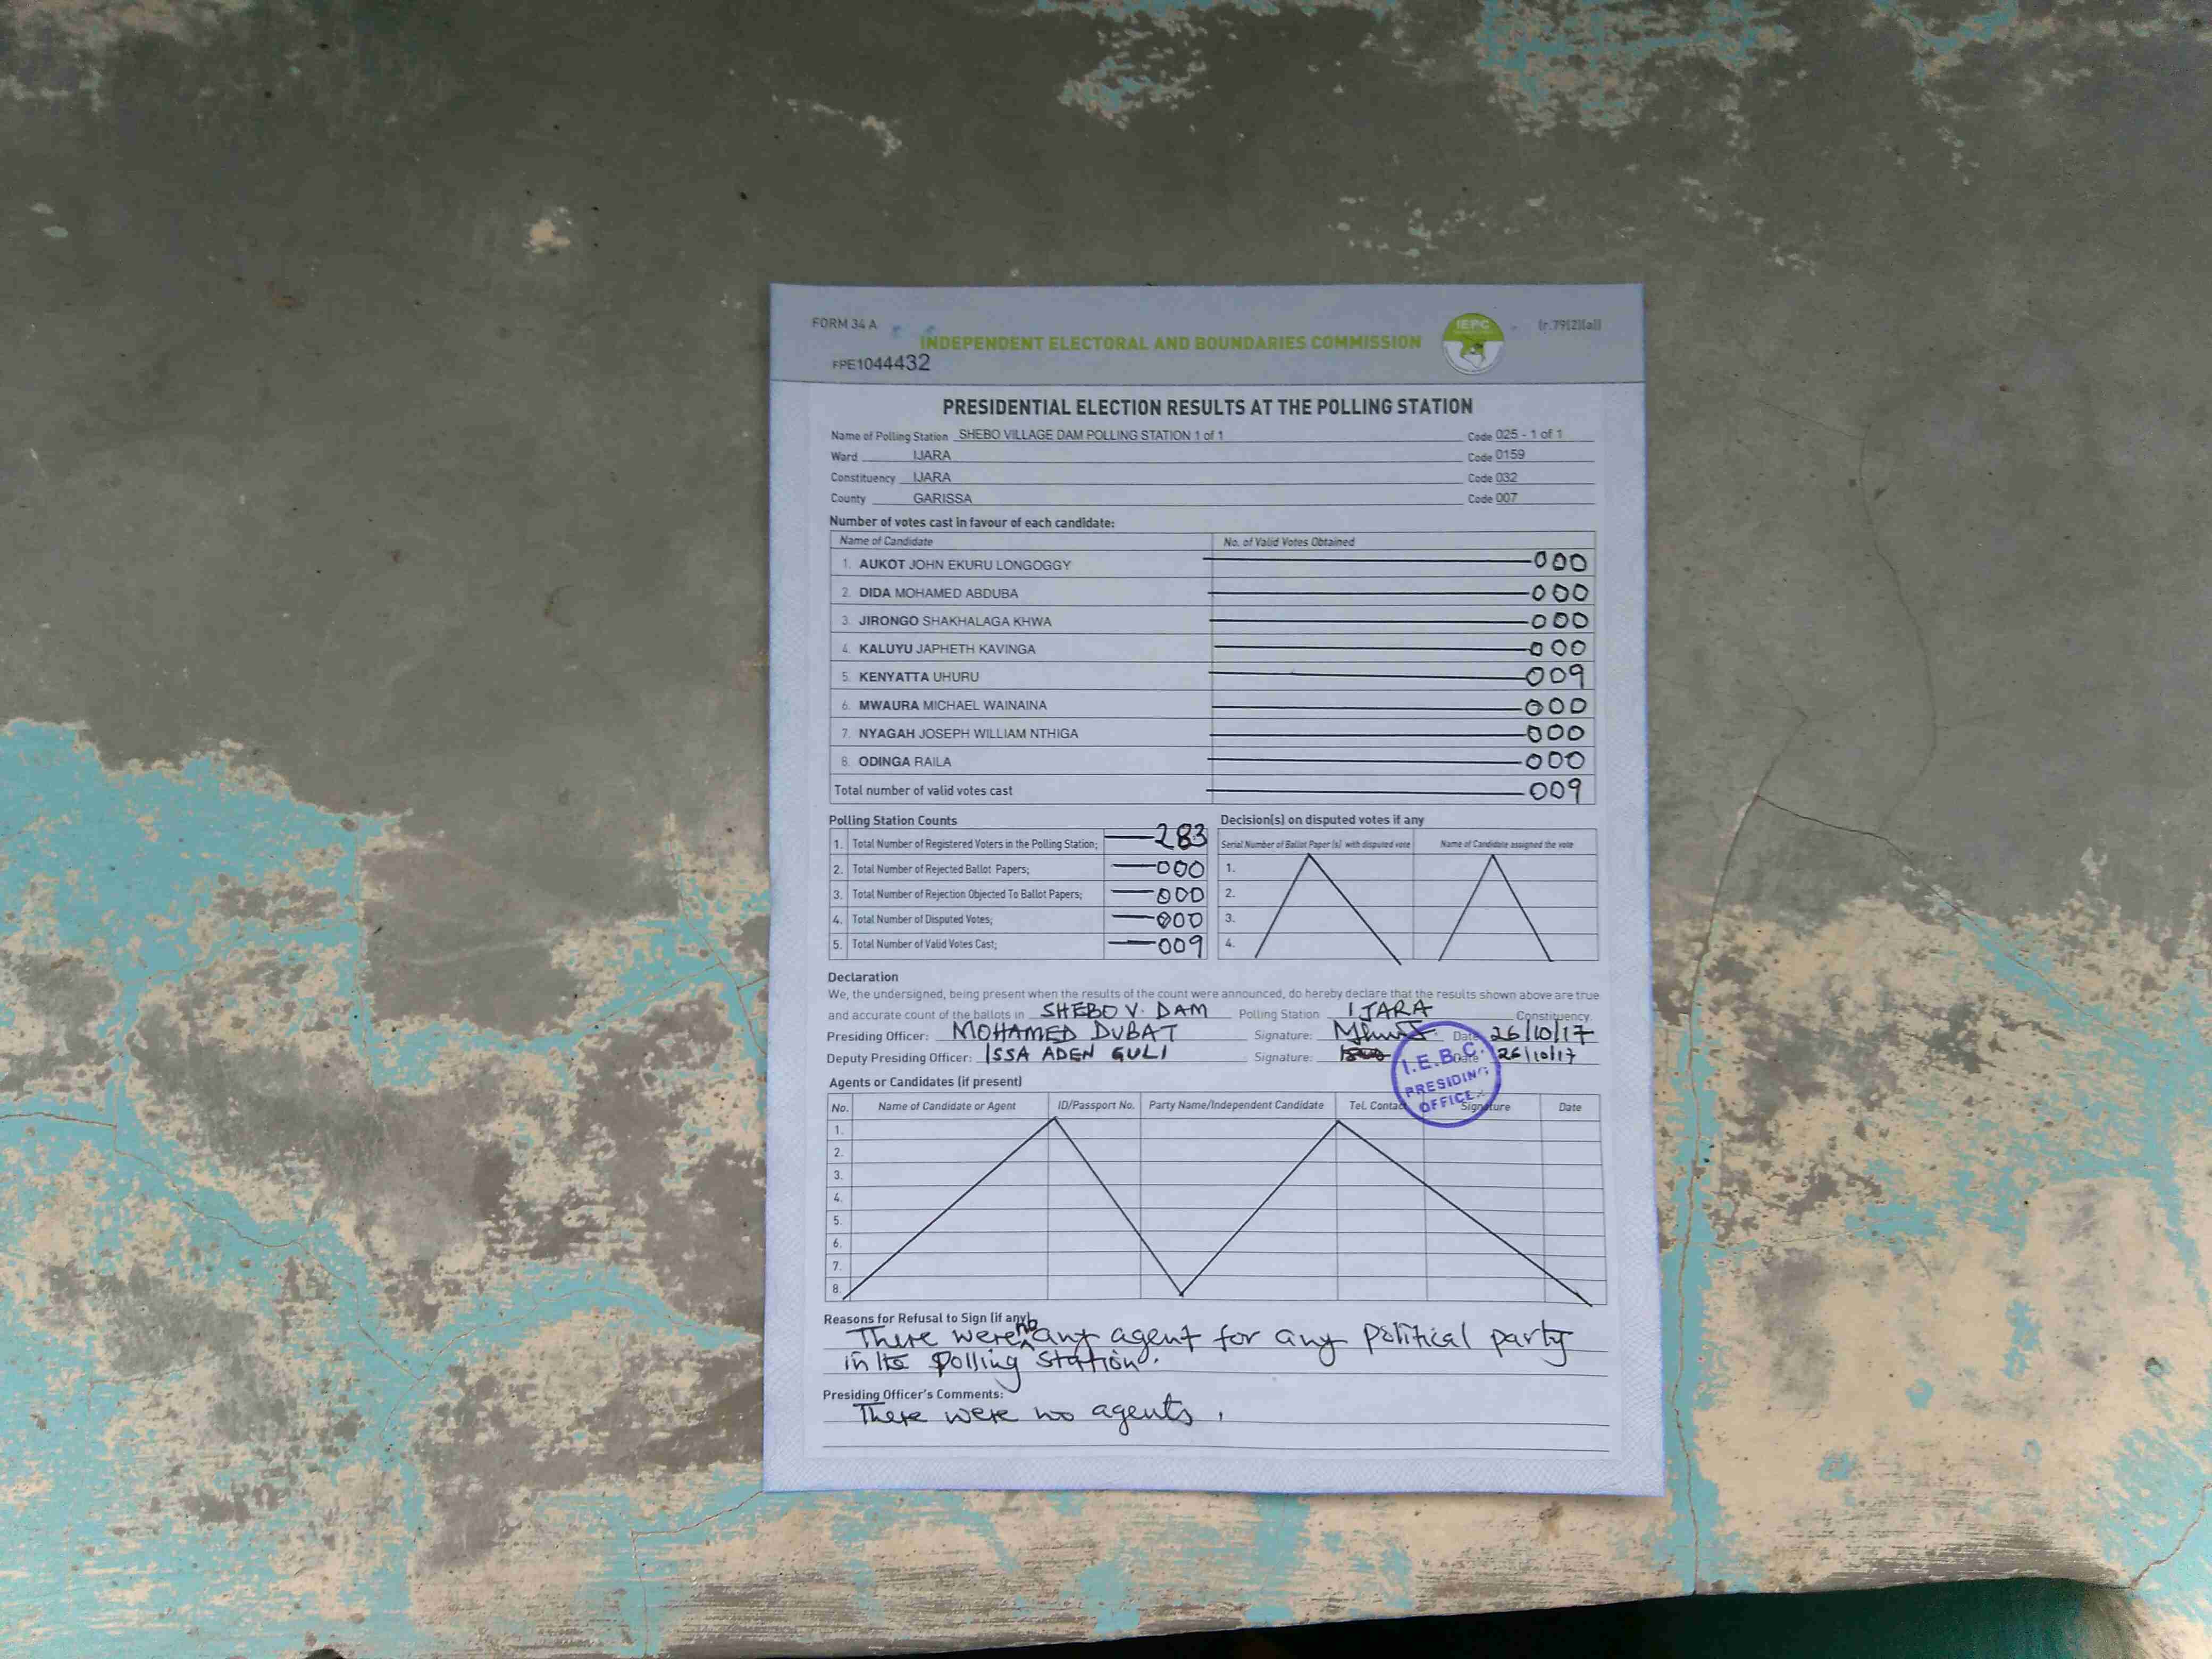 FORM 34 A
INDEPENDENT ELECTORAL AND BOUNDARIES COMMISSION
IEBC
(r.79(2)(a))
FPE1044432
PRESIDENTIAL ELECTION RESULTS AT THE POLLING STATION
Name of Polling Station SHEBO VILLAGE DAM POLLING STATION 1 of 1 Code 025 - 1 of 1
Ward IJARA Code 0159
Constituency IJARA Code 032
County GARISSA Code 007
Number of votes cast in favour of each candidate:
Name of Candidate No. of Valid Votes Obtained
1. AUKOT JOHN EKURU LONGOGGY 000
2. DIDA MOHAMED ABDUBA 000
3. JIRONGO SHAKHALAGA KHWA 000
4. KALUYU JAPHETH KAVINGA 000
5. KENYATTA UHURU 009
6. MWAURA MICHAEL WAINAINA 000
7. NYAGAH JOSEPH WILLIAM NTHIGA 000
8. ODINGA RAILA 000
Total number of valid votes cast 009
Polling Station Counts
1. Total Number of Registered Voters in the Polling Station; 283
2. Total Number of Rejected Ballot Papers; 000
3. Total Number of Rejection Objected To Ballot Papers; 000
4. Total Number of Disputed Votes; 000
5. Total Number of Valid Votes Cast; 009
Decision(s) on disputed votes if any
Serial Number of Ballot Paper (s) with disputed vote Name of Candidate assigned the vote
1.
2.
3.
4.
Declaration
We, the undersigned, being present when the results of the count were announced, do hereby declare that the results shown above are true
and accurate count of the ballots in SHEBO V. DAM Polling Station IJARA Constituency.
Presiding Officer: MOHAMED DUBAT Signature: Date 26/10/17
Deputy Presiding Officer: ISSA ADEN GULI Signature: Date 26/10/17
I.E.B.C.
PRESIDING
OFFICER
Agents or Candidates (if present)
No. Name of Candidate or Agent ID/Passport No. Party Name/Independent Candidate Tel. Contact Signature Date
1.
2.
3.
4.
5.
6.
7.
8.
Reasons for Refusal to Sign (if any)
There were no any agent for any political party
in polling station.
Presiding Officer's Comments:
There were no agents.